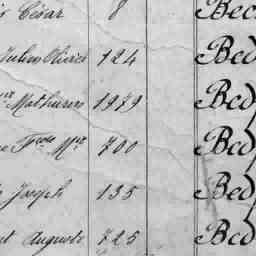 César 8 Bec
Julien Olivier 124 Bed
Mathurin 1979 Bed
Fçois Mie 700 Bed
Joseph 135 Bed
Auguste 725 Bed